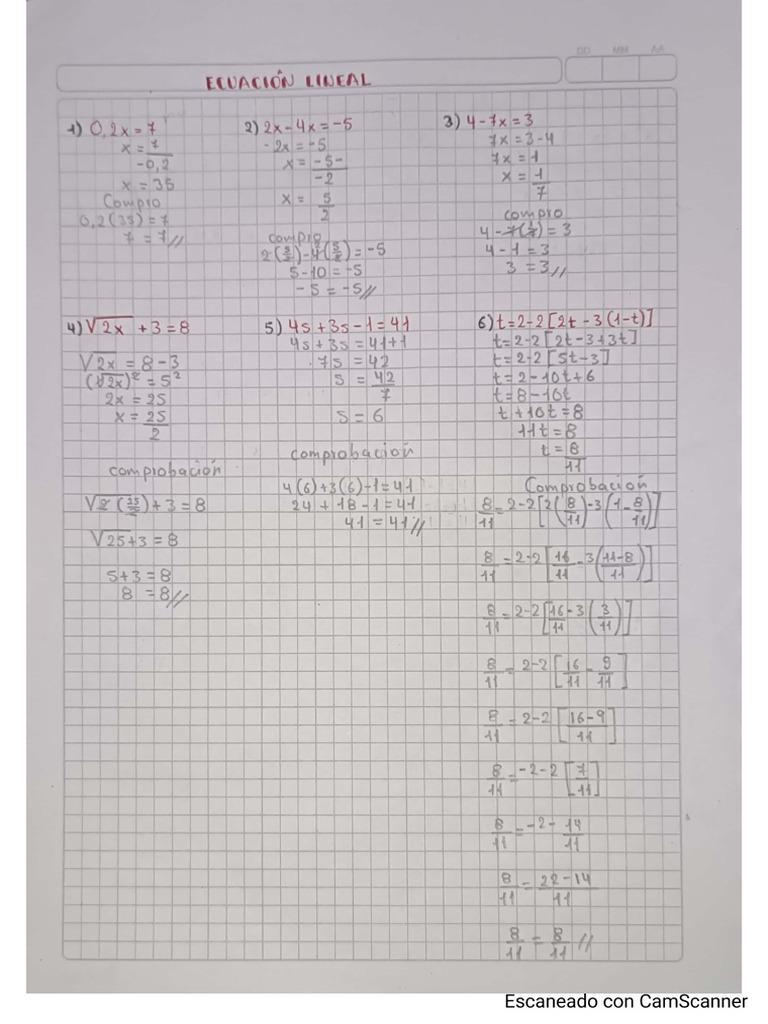 DD MM AA
ECUACIÓN LINEAL
1) 0,2x = 7
x = 7
-0,2
x = 35
Compro
0,2(35) = 7
7 = 7//
2) 2x - 4x = -5
-2x = -5
x = -5-
-2
x = 5
2
compro
2(5/2) - 4(5/2) = -5
5 - 10 = -5
- 5 = -5//
3) 4 - 7x = 3
7x = 3-4
7x = 1
x = 1
7
compro
4 - 7(1/7) = 3
4 - 1 = 3
3 = 3//
4) √2x + 3 = 8
√2x = 8 - 3
(√2x)² = 5²
2x = 25
x = 25
2
comprobación
√2 (25/2) + 3 = 8
√25 + 3 = 8
5 + 3 = 8
8 = 8//
5) 4s + 3s - 1 = 41
4s + 3s = 41+1
7s = 42
s = 42
7
s = 6
comprobación
4(6) + 3(6) - 1 = 41
24 + 18 - 1 = 41
41 = 41//
6) t = 2-2 [2t - 3 (1-t)]
t = 2-2 [2t - 3 + 3t]
t = 2-2 [5t - 3]
t = 2 - 10t + 6
t = 8 - 10t
t + 10t = 8
11t = 8
t = 8
11
Comprobación
8/11 = 2-2 [2(8/11) - 3 (1 - 8/11)]
8/11 = 2-2 [16/11 - 3 (11-8/11)]
8/11 = 2-2 [16/11 - 3 (3/11)]
8/11 = 2-2 [16/11 - 9/11]
8/11 = 2-2 [16-9/11]
8/11 = -2-2 [7/11]
8/11 = -2 - 14/11
8/11 = 22-14/11
8/11 = 8/11 //
Escaneado con CamScanner